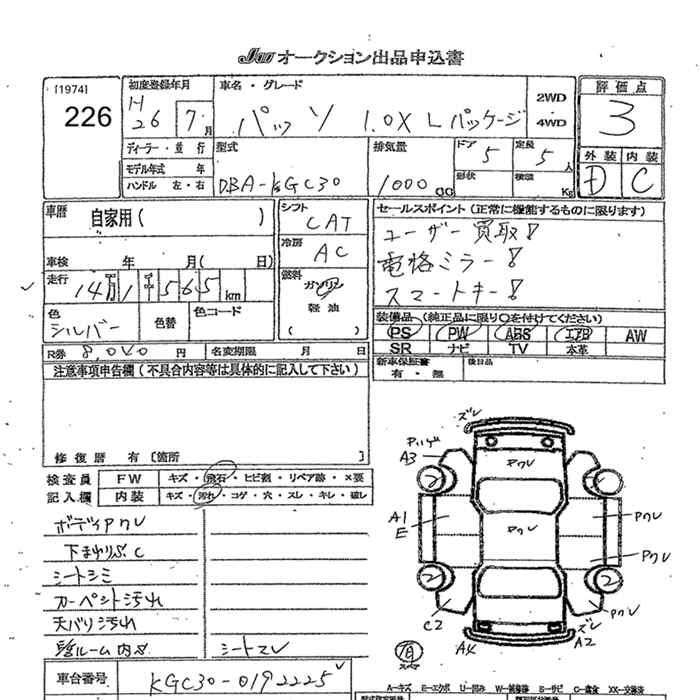 JAA オークション出品申込書
[1974]
226
初度登録年月
H26 7月
車名・グレード
パッソ 1.0X Lパッケージ
2WD
4WD
評価点
3
外装 内装
D C
ディーラー・並行
モデル年式 年
ハンドル 左・右
型式
DBA-KGC30
排気量
1000 CC
ドア
5
定員
5人
形状
積載
Kg
車歴
自家用( )
車検 年 月( 日)
走行
14万1千565 km
色
シルバー
色替
色コード
シフト
CAT
冷房
AC
燃料
ガソリン
軽油
( )
セールスポイント(正常に機能するものに限ります)
ユーザー買取!
電格ミラー!
スマートキー!
装備品(純正品に限り○を付けてください)
PS PW ABS エアB AW
SR ナビ TV 本革
新車保証書
有・無
後日品
R券 8,040 円
名変期限 月 日
注意事項申告欄(不具合内容等は具体的に記入して下さい)
修復歴 有[箇所 ]
検査員
記入欄
FW キズ・飛石・ヒビ割・リペア跡・×要
内装 キズ・汚れ・コゲ・穴・スレ・キレ・破レ
ボディアクレ
下まわりぶC
シートシミ
カーペット汚れ
天バリ汚れ
シートスレ
車台番号
KGC30-0192225
ズレ
A3
アクレ
A1
E
アクレ
アクレ
アクレ
アクレ
C2
A4
A2
ズレ
A-キズ E-エクボ U-凹み W-補修跡 S-サビ C-腐食 XX-交換済